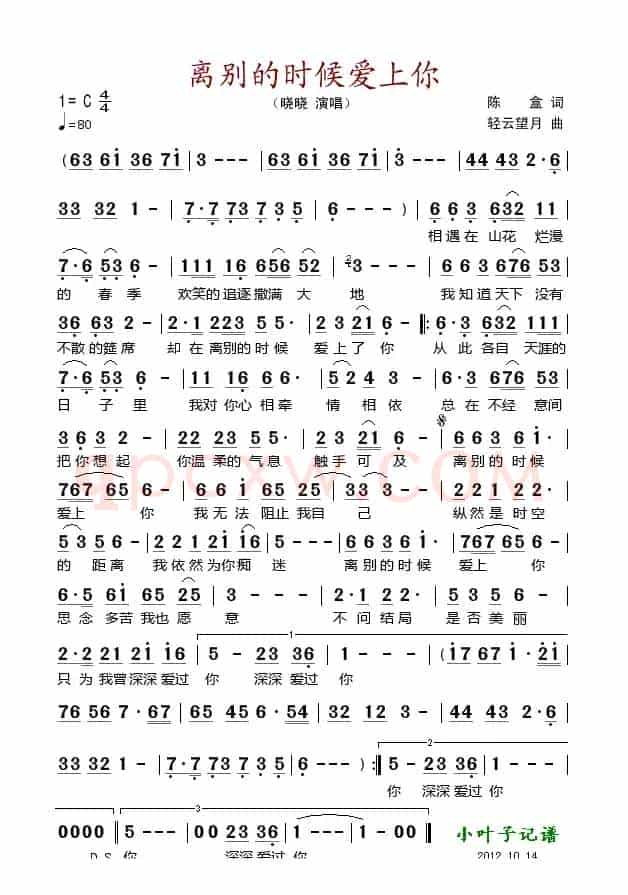 离别的时候爱上你
1= C 4/4
（晓晓 演唱）
陈 盒 词
♩=80
轻云望月 曲
( 63 61 36 71 | 3 - - - | 63 61 36 71 | 3 - - - | 44 43 2·6
33 32 1 - | 7·7 73 73 5 | 6 - - - ) | 6 6 3 6632 11
相遇在 山花 烂漫
7·6 53 6 - | 111 16 656 52 | 3 - - - | 6 6 3 676 53
的 春季 欢笑的追逐撒满 大 地 我知道天下没有
36 63 2 - | 2·1 223 5 5 | 3 2 21 6 - |: 6·3 6632 111
不散的筵席 却在离别的时候 爱上了你 从此各自 天涯的
7·6 53 6 - | 111 16 656 | 5 2 4 3 - | 6·3 676 53
日子里 我对你心相牵 情相依 总在不经意间
3 6 3 2 - | 2 21 23 5 5 | 2 3 21 6 - | 6 63 6 1·
把你想起 你温柔的气息 触手可及 离别的时候
qpcxw.com
767 65 6 -
爱上 你 我无法阻止我自 己 纵然是时空
5 3 5 6 -
的距离 我依然为你痴 迷 离别的时候 爱上 你
6·5 61 65 25 | 3 - - -
思念多苦我也愿 意 不问结局 是否美丽
1
2·2 21 21 16 | 5 - 23 36 | 1 - - - | (17 67 1 2·1
只为我曾深深爱过 你 深深爱过 你
76 56 7·67 | 65 45 6·54 | 32 12 3 - | 44 43 2·6
2
33 32 1 - | 7·7 73 73 5 | 6 - - - ) :| 5 - 23 36 | 1 - - -
你 深深爱过 你
3
0000 | 5 - - - | 0 0 23 36 | 1 - - - | 1 - 00
小叶子记谱
D.S.你 深深爱过你
2012.10.14